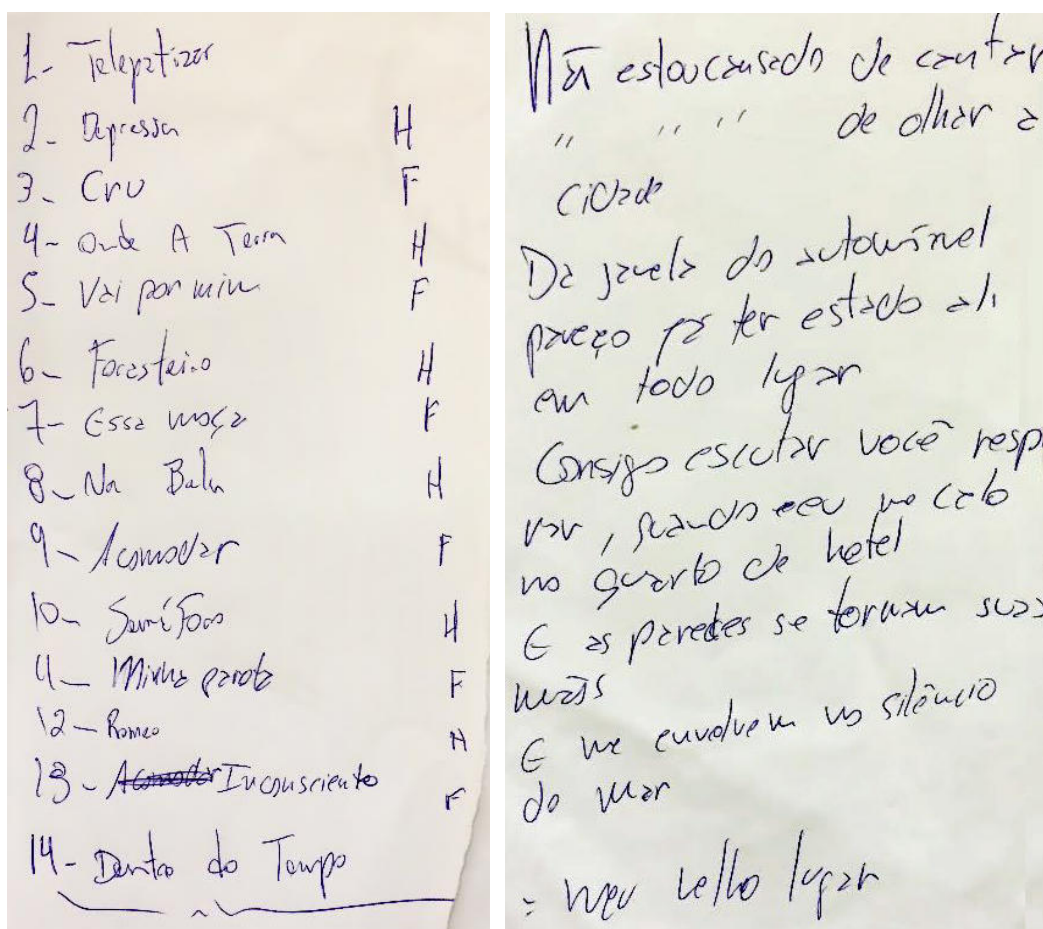 1- Telepatizar
2- Depressa H
3- Cru F
4- Onde A Terra H
5- Vai por mim F
6- Forasteiro H
7- Essa moça F
8- Na Bala H
9- Acomodar F
10- Semáforo H
11- Minha garota F
12- Romeo H
13- Acomodar Inconsciente F
14- Dentro do Tempo
Não estou cansado de cantar
" " " de olhar a
cidade
Da janela do automóvel
pareço já ter estado ali
em todo lugar
Consigo escutar você respi
rar, quando eu me calo
no quarto de hotel
E as paredes se tornam suas
mãos
E me envolvem no silêncio
do mar
= meu velho lugar